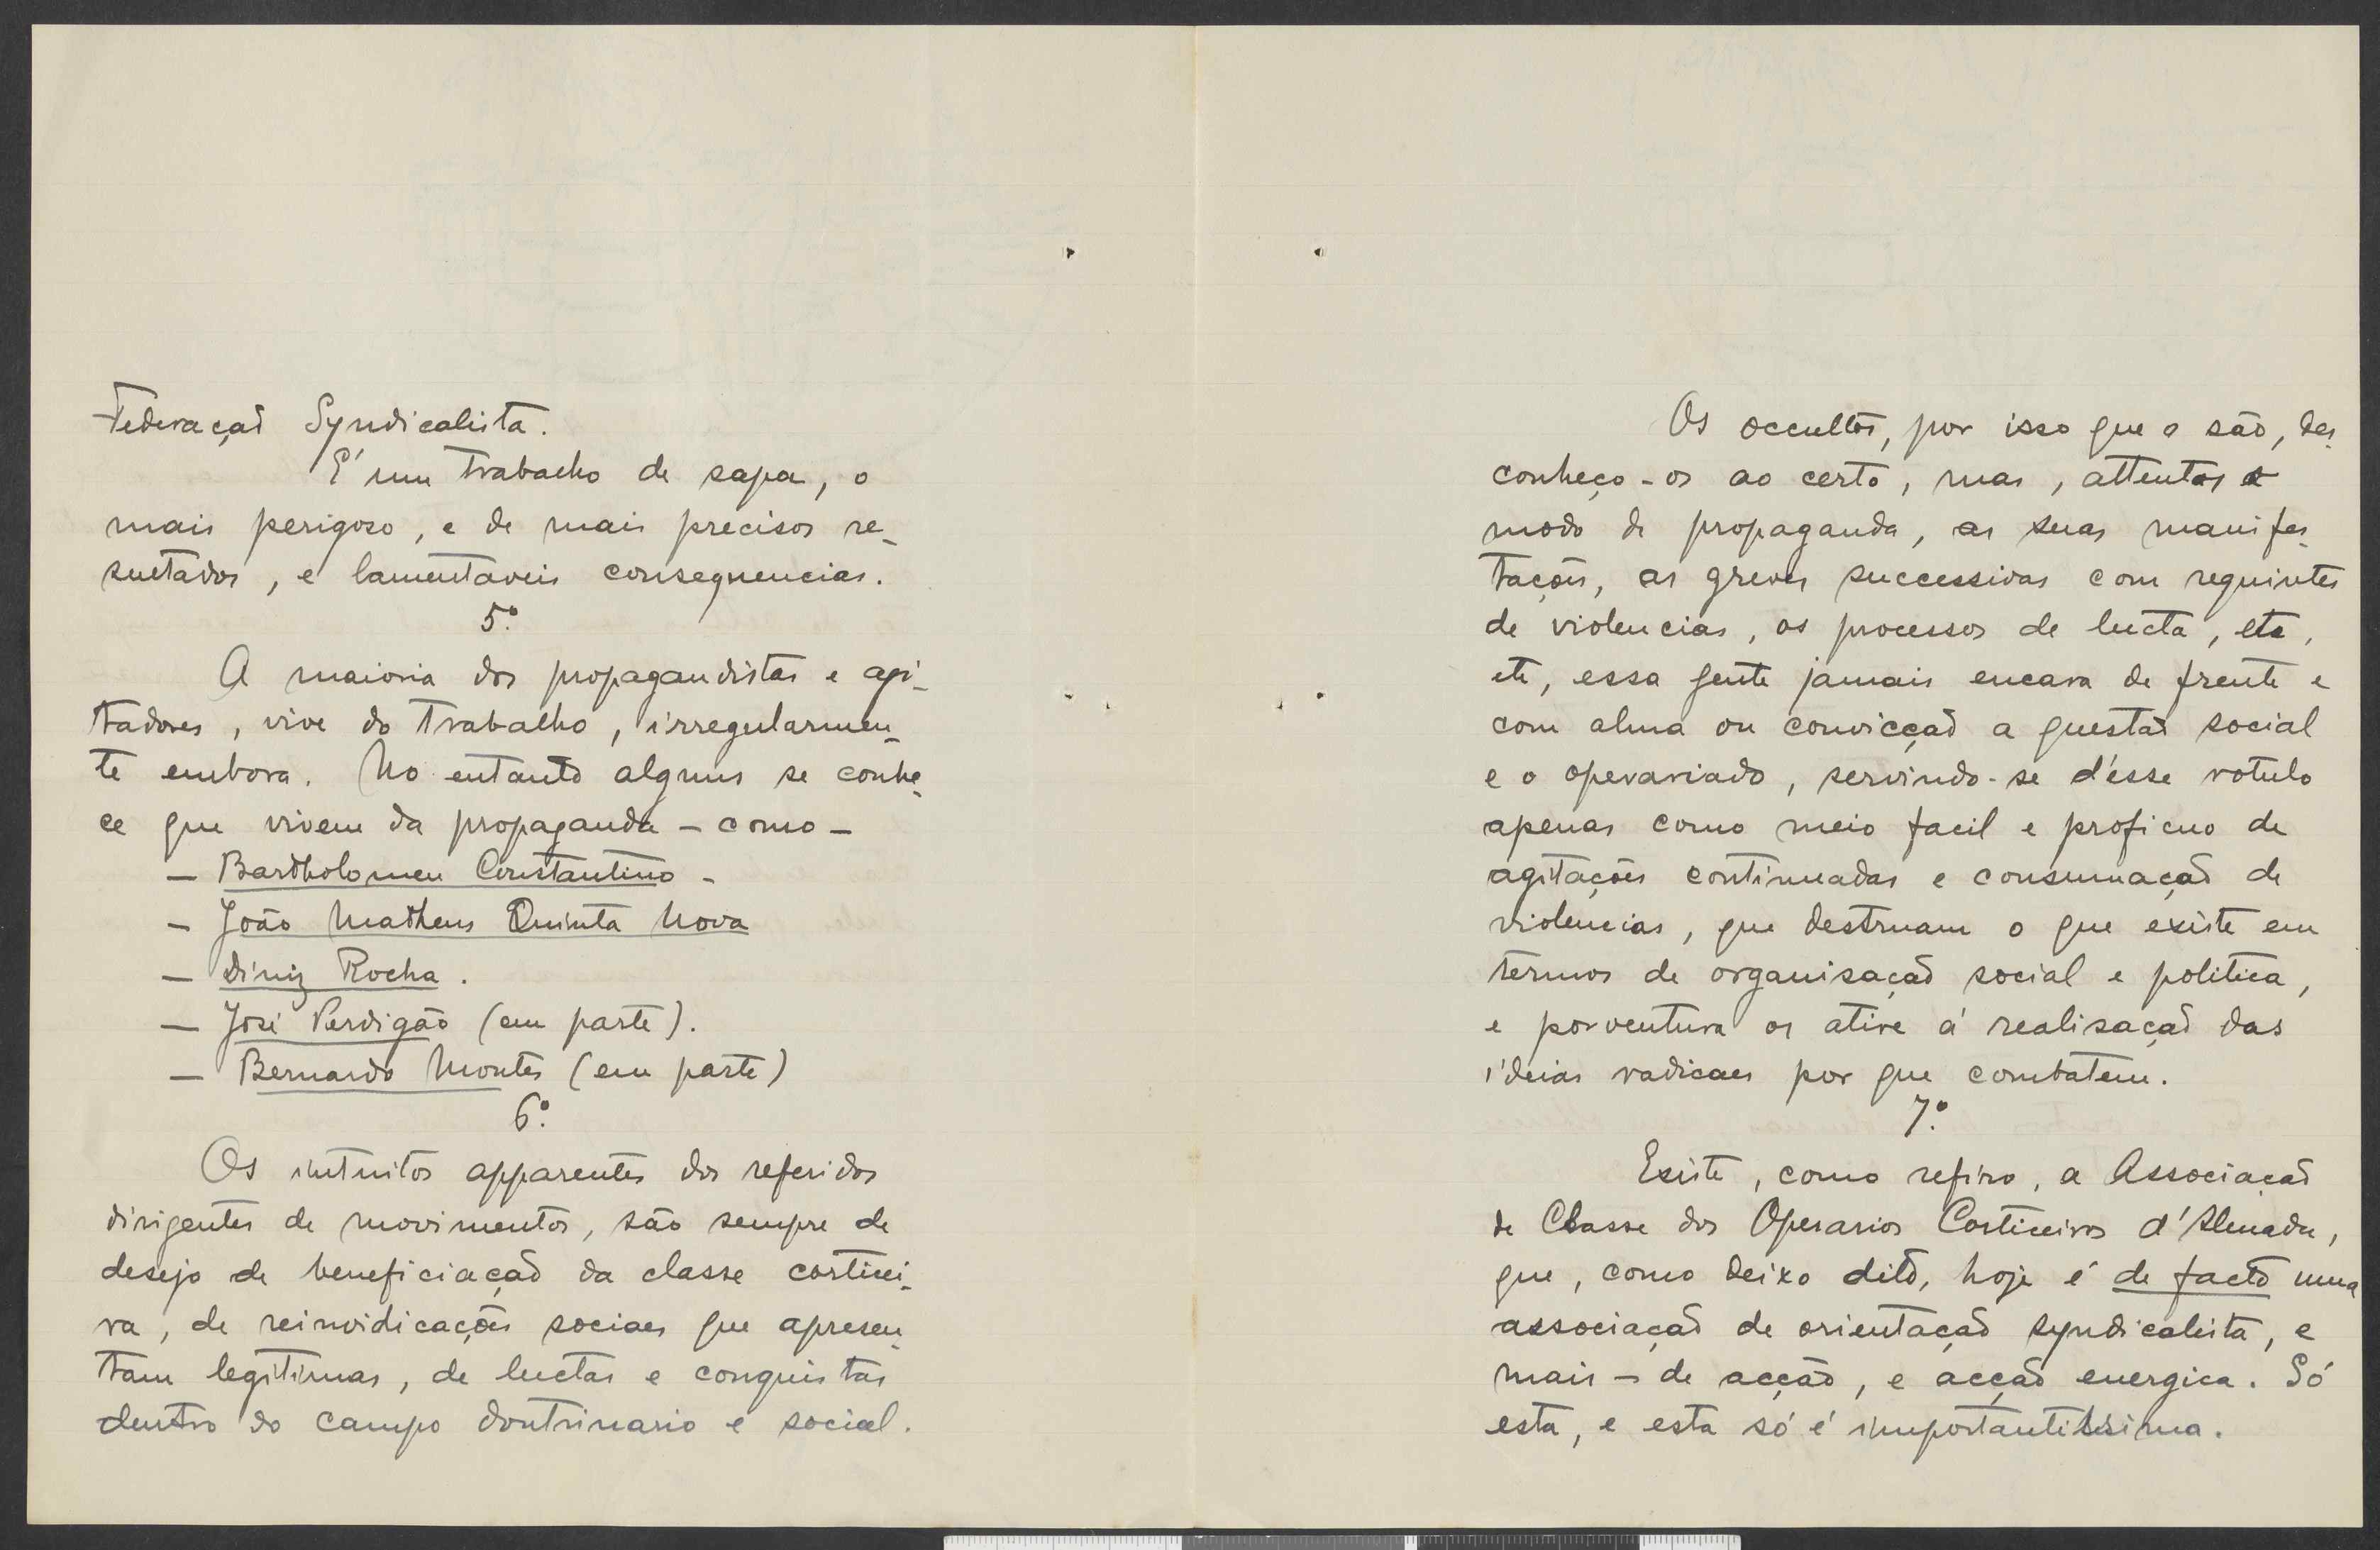 Federação Syndicalista.
E' um trabalho de sapa, o
mais perigoso, e de mais precisos re-
sultados, e lamentaveis consequencias.
5º.
A maioria dos propagandistas e agi-
tadores, vive do trabalho, irregularmen-
te embora. No entanto alguns se conhe-
ce que vivem da propaganda - como -
- Bartholomeu Constantino -
- João Matheus Quinta Nova
- Diniz Rocha.
- José Perdigão (em parte).
- Bernardo Montes (em parte)
6º.
Os intuitos apparentes dos referidos
dirigentes de movimentos, são sempre de
desejo de beneficiação da classe corticei-
ra, de reinvidicações sociaes que apresen-
tam legitimas, de luctas e conquistas
dentro do campo doutrinario e social.
Os occultos, por isso que o são, des-
conheço-os ao certo, mas, attentos o
modo de propaganda, as suas manifes-
tações, as greves successivas com requintes
de violencias, os processos de lucta, etc,
etc, essa gente jamais encara de frente e
com alma ou convicção a questão social
e o operariado, servindo-se d'esse rotulo
apenas como meio facil e proficuo de
agitações continuadas e consumação de
violencias, que destruam o que existe em
termos de organisação social e politica,
e porventura os atire á realisação das
ideias radicaes por que combatem.
7º.
Existe, como refiro, a Associação
de Classe dos Operarios Corticeiros d'Almada,
que, como deixo dito, hoje é de facto uma
associação de orientação syndicalista, e
mais - de acção, e acção energica. Só
esta, e esta só é importantissima.